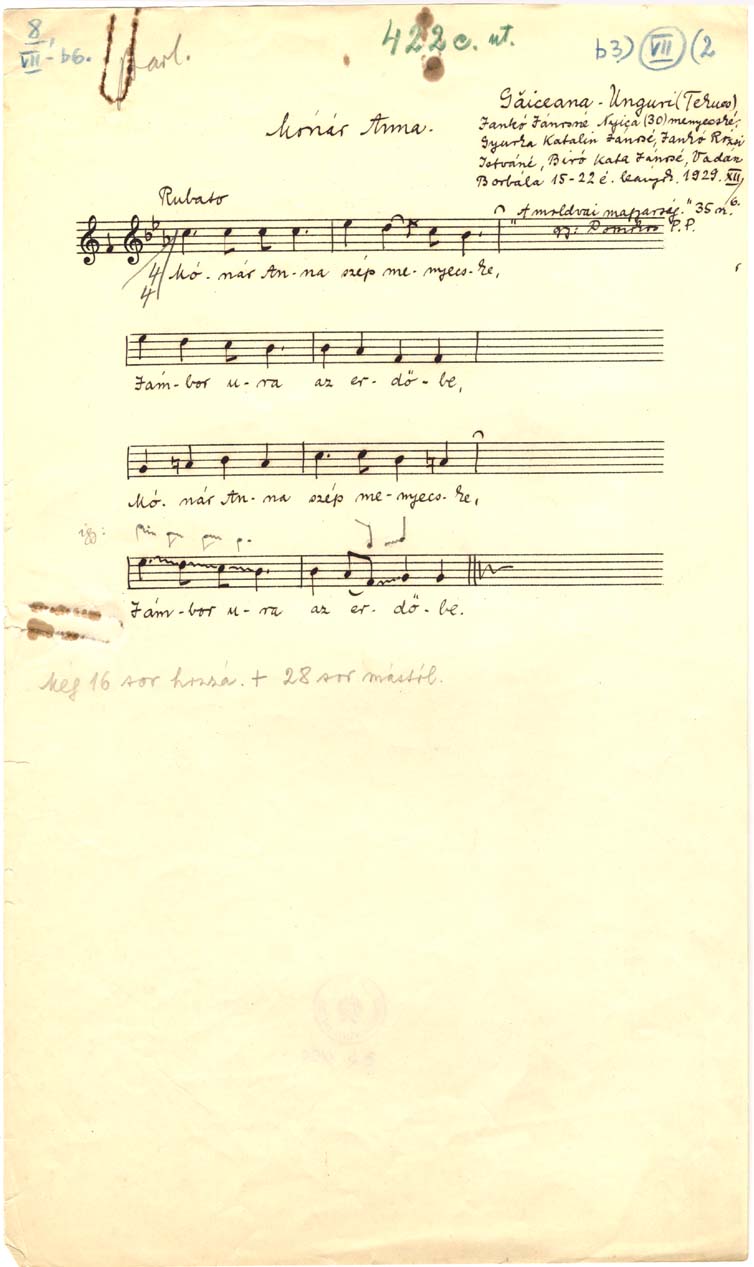 8
VII - b6.
parl.
422 c. nt.
b3) VII (2
Mónár Anna.
Găiceana - Unguri (Tecuci)
Jankó Jánosné Nyica (30) menyecske,
Gyurka Katalin Jánosé, Jankó Rózsi
Istváné, Biró Kata Jánosé, Vadan
Borbála 15-22 é. leányok. 1929. XII/6.
"A moldvai magyarság." 35 n.
gy: Domokos P. P.
Rubato
4/4
Mó-nár An-na szép me-nyecs-ke,
Jám-bor u-ra az er-dő-be,
Mó-nár An-na szép me-nyecs-ke,
így:
Jám-bor u-ra az er-dő-be.
Még 16 sor hozzá. + 28 sor mástól.